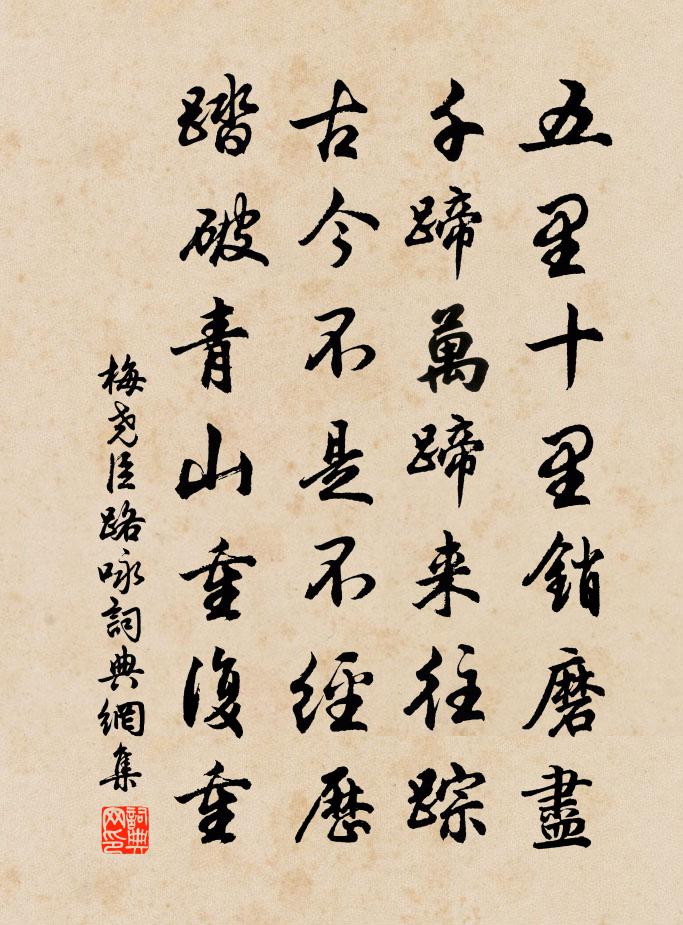 五里十里銷磨盡
千蹄萬蹄来往踪
古今不是不經歷
踏破青山重復重
梅尧臣路咏詞典網集
詞典网印